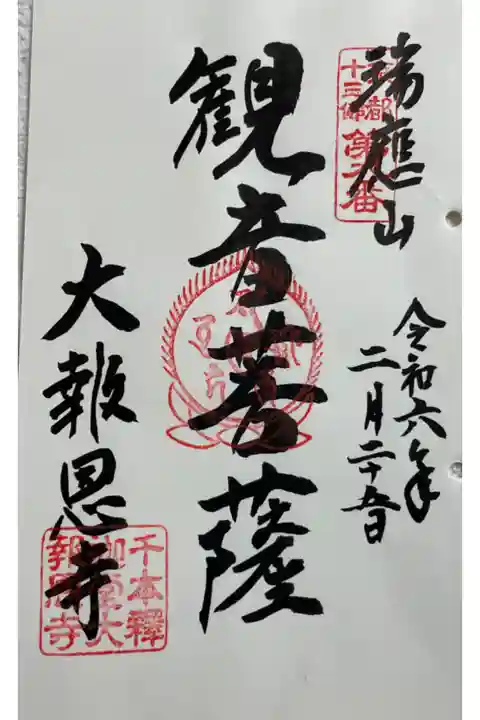 瑞應山
京都
十三佛
第二番
令和六年
二月二十五日
観音菩薩
大報恩寺
千本釋
迦堂大
報恩寺